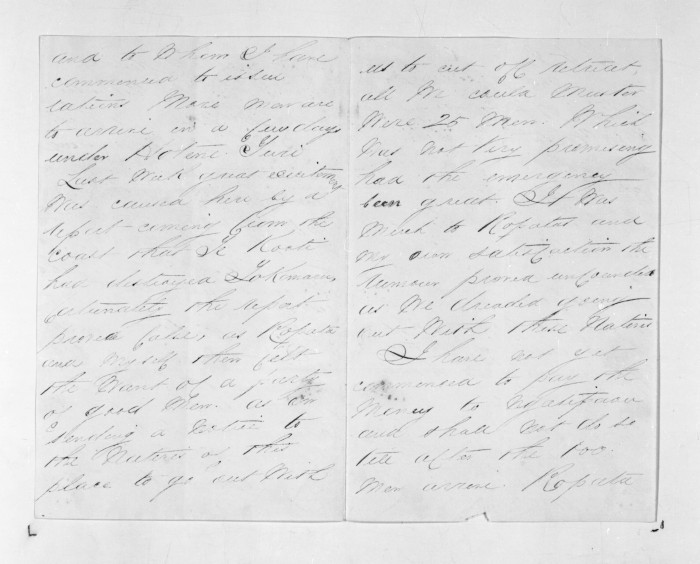 and to whom I have
commenced to issue
rations More men are
to arrive in a few days
under Hotene.
Last week great excitement
was caused here by a
report coming from the
coast that Te Kooti
had destroyed
fortunately the report
proved false, as Ropata
and myself then felt
the want of a party
of good Men. as on
sending a notice to
the Natives of this
place to go out with
us to cut off retreat,
all we could Muster
were 25 Men. Which
was not very promising
had the emergency
been great. It was
Much to Ropatas and
my own satisfaction the
rumour proved unfounded
as we dreaded going
out with these Natives
I have not yet
commenced to pay the
Money to Ngatiporou
and shall not do so
till after the 100.
Men arrive. Ropata